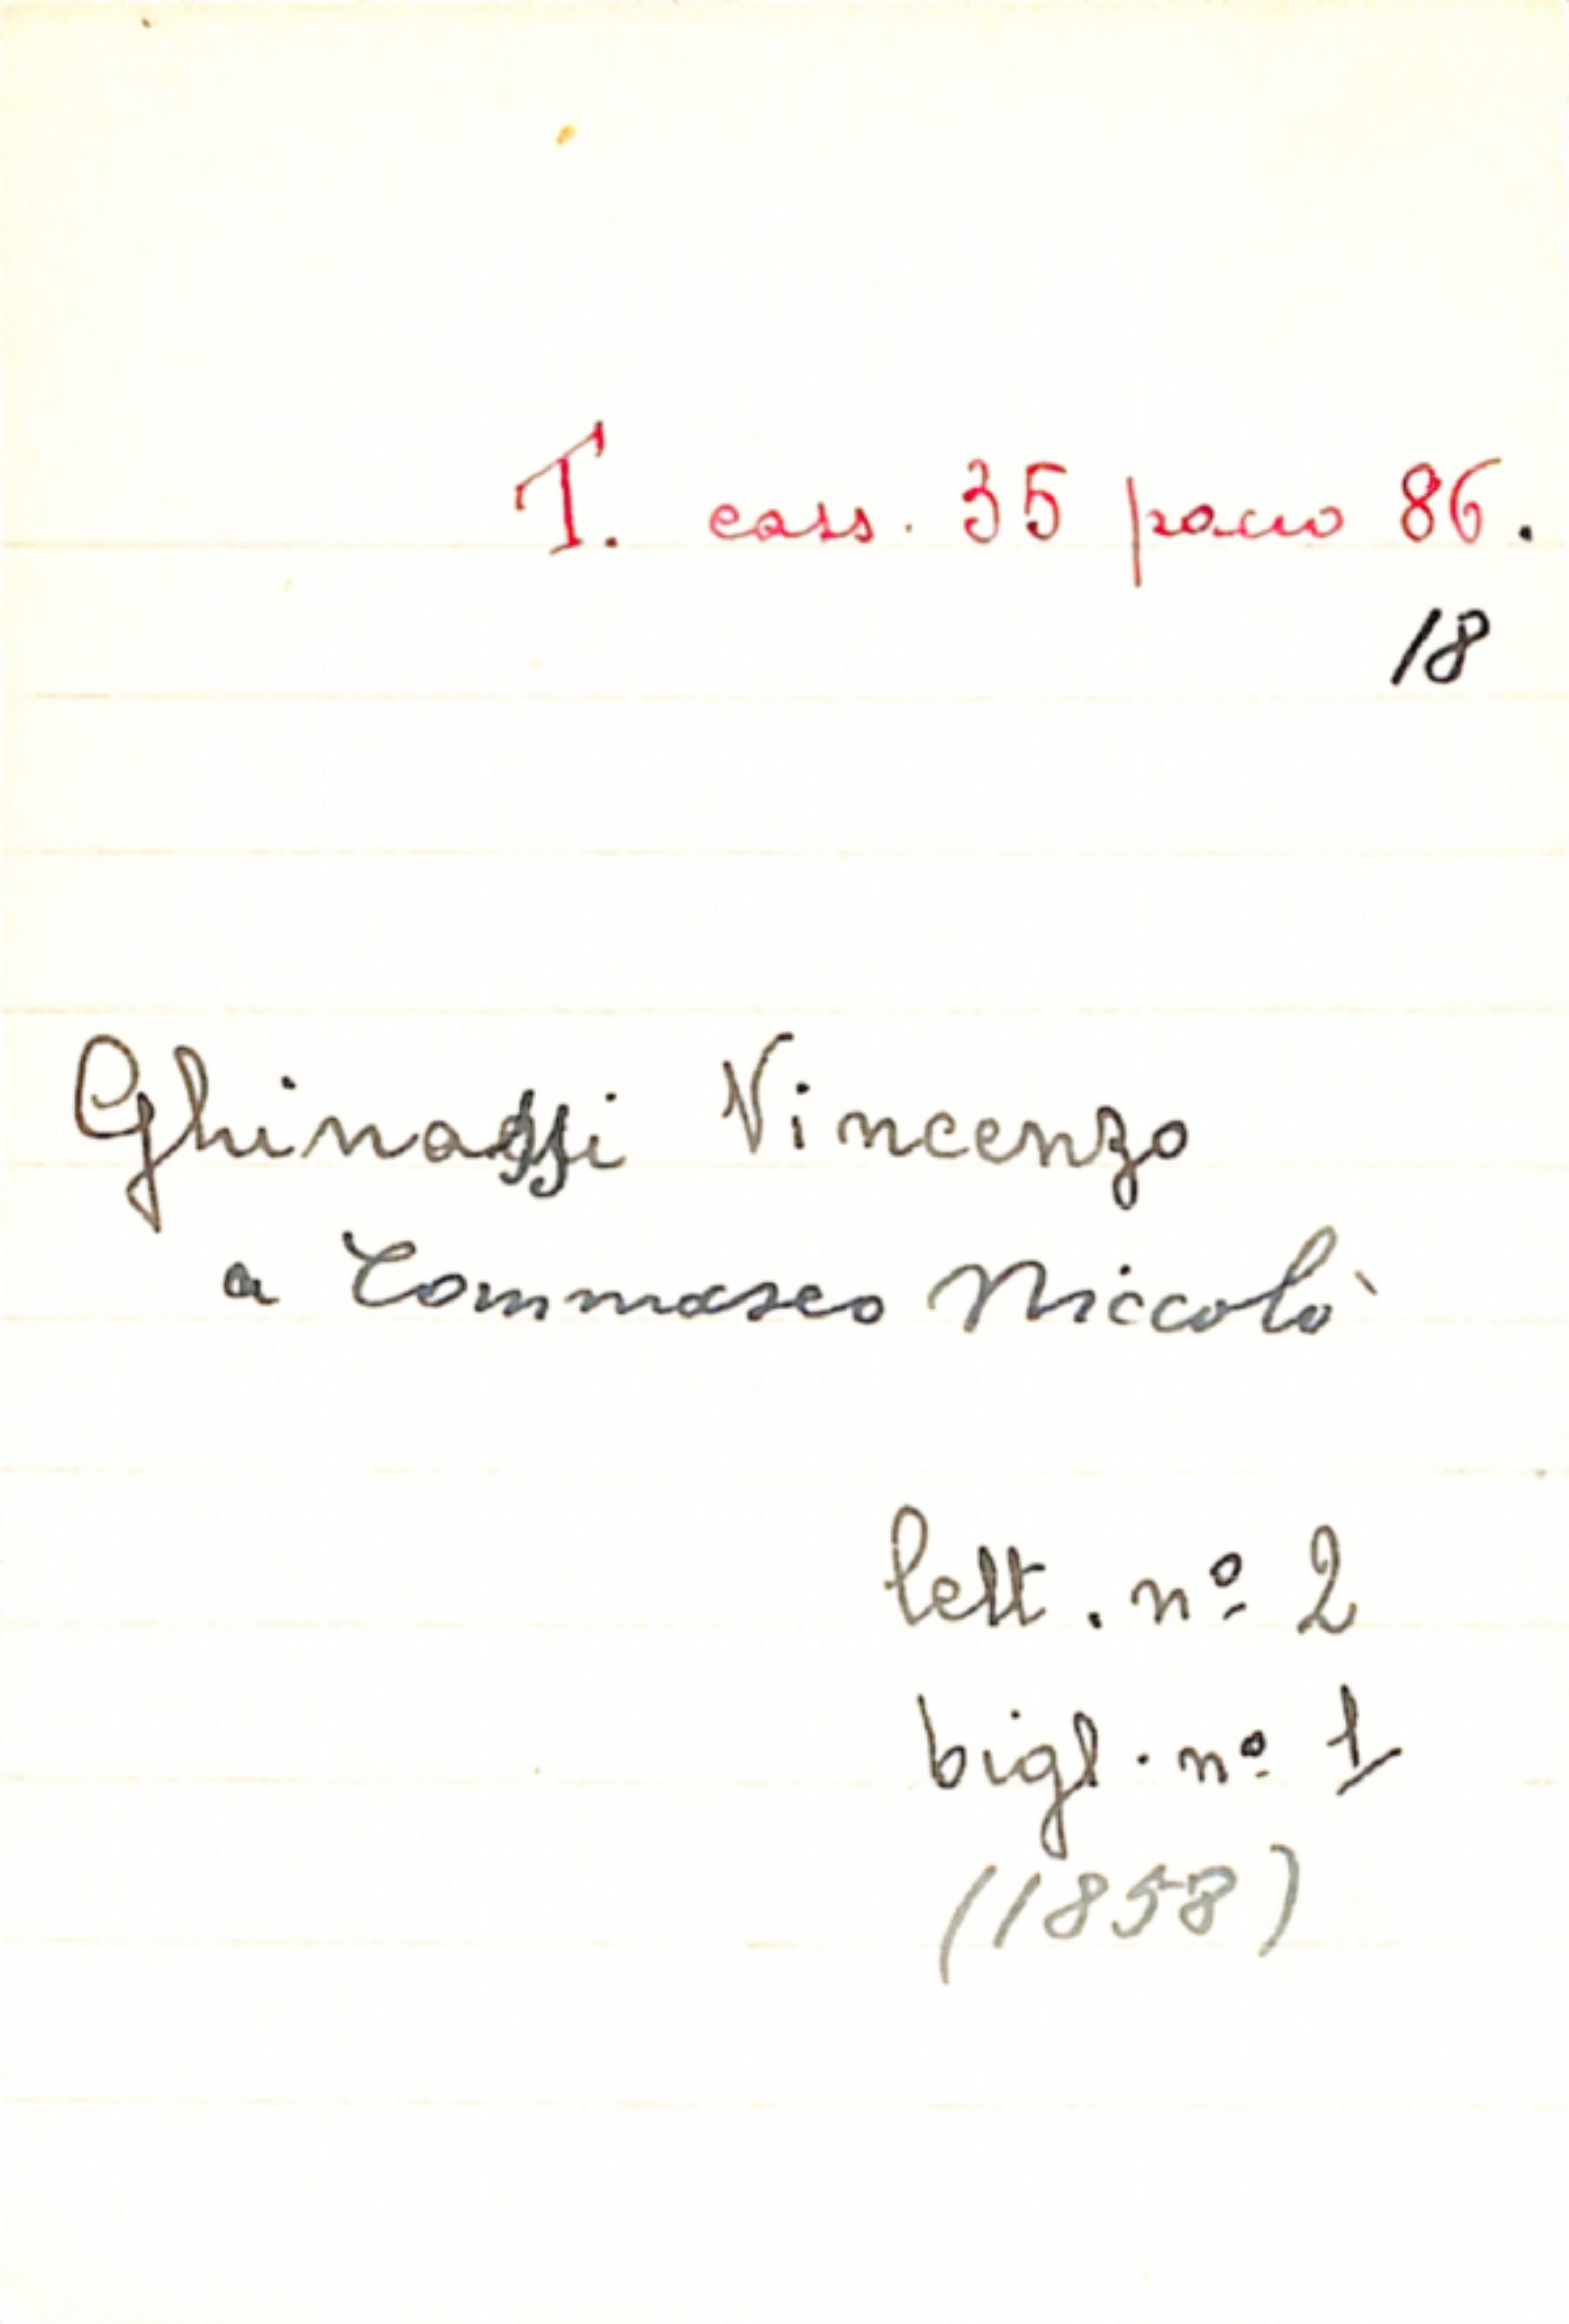 T. cass. 35 pacco 86.
18
Ghinassi Vincenzo
a Tommaseo Niccolò
lett. nº 2
bigl. nº 1
(1858)